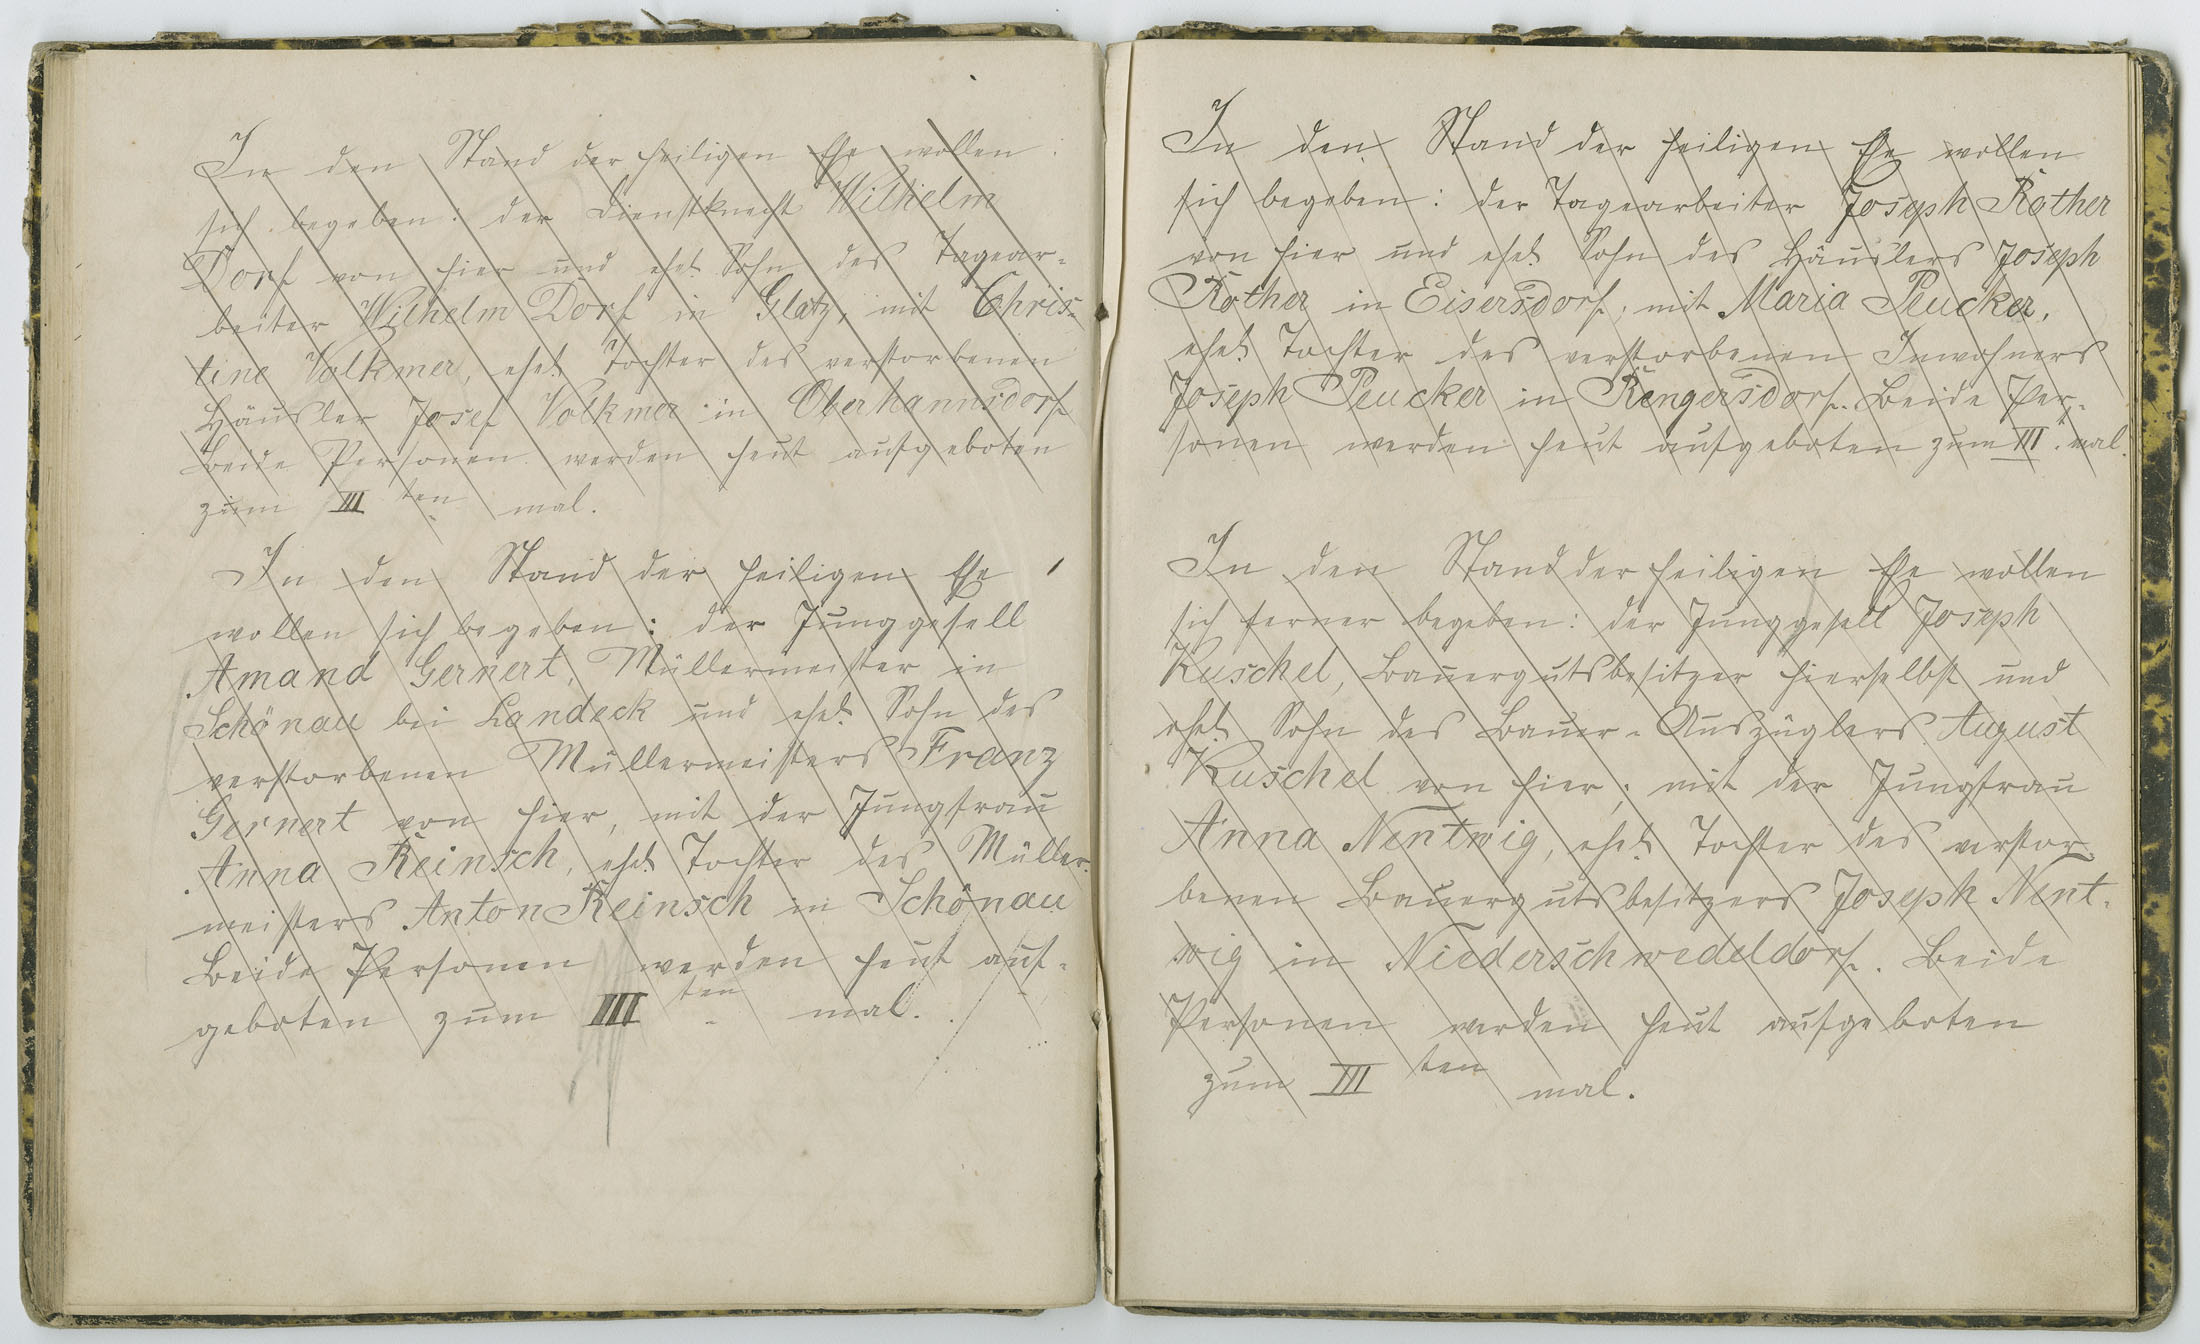 In den Stand der heiligen Ehe wollen
sich begeben: der Dienstknecht Wilhelm
Dorf von hier und ehel. Sohn des Tagear-
beiter Wilhelm Dorf in Glatz, mit Chris-
tine Volkmer, ehel. Tochter des verstorbenen
Häusler Josef Volkmer in Oberhannsdorf.
Beide Personen werden heut aufgeboten
zum III ten mal.
In den Stand der heiligen Ehe
wollen sich begeben: der Junggesell
Amand Gernert, Müllermeister in
Schönau bei Landeck und ehel. Sohn des
verstorbenen Müllermeisters Franz
Gernert von hier, mit der Jungfrau
Anna Reinsch, ehel. Tochter des Müller-
meisters Anton Reinsch in Schönau
Beide Personen werden heut auf-
geboten zum III ten mal.
In den Stand der heiligen Ehe wollen
sich begeben: der Tagearbeiter Joseph Rother
von hier und ehel. Sohn des Häuslers Joseph
Rother in Eisersdorf, mit Maria Peucker,
ehel. Tochter des verstorbenen Inwohners
Joseph Peucker in Rengersdorf. Beide Per-
sonen werden heut aufgeboten zum III. mal.
In den Stand der heiligen Ehe wollen
sich ferner begeben: der Junggesell Joseph
Kuschel, Bauergutsbesitzer hierselbst und
ehel. Sohn des Bauer-Auszüglers August
Kuschel von hier; mit der Jungfrau
Anna Nentwig, ehel. Tochter des verstor-
benen Bauergutsbesitzers Joseph Nent-
wig in Niederschwedeldorf. Beide
Personen werden heut aufgeboten
zum III ten mal.